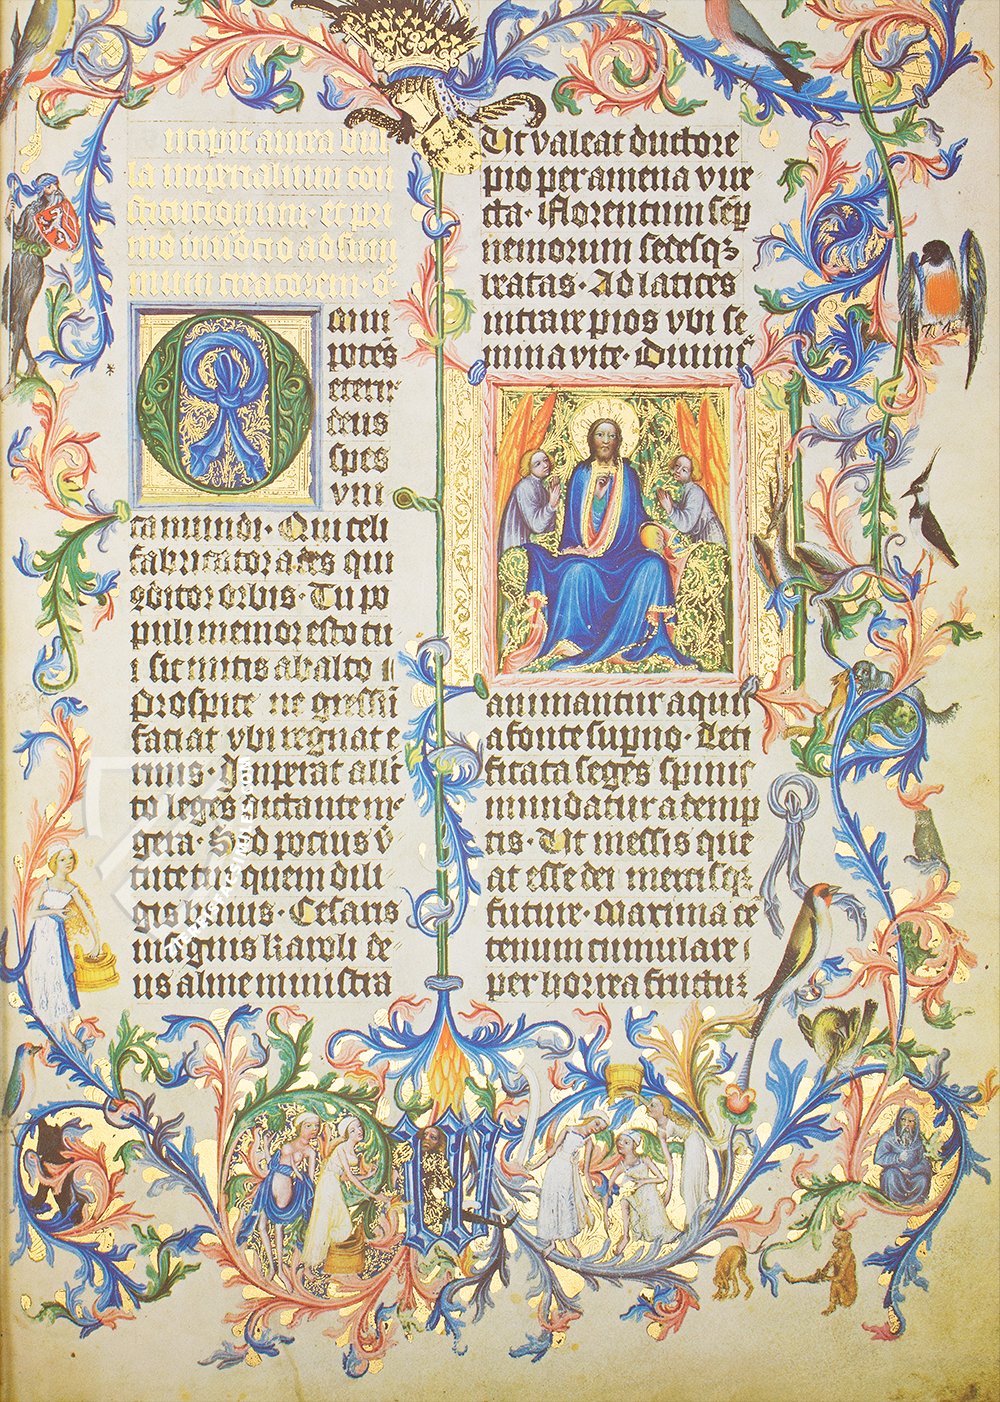 incipit aurea bul
la imperialium con
stitucionum · et pri
mo inuocio ad sum
mum creatorem · O
Omni
potēs
eterne
deus
spes
vni
ca mundi · Qui celi
fabricator ades qui
oditor orbis · Tu po
puli memor esto tu
i sic mitis ab alto
Prospice ne gressū
faciat vbi regnat e
rinis · Imperat alle
to leges dictante me
gera · Sed pocius v̄
tute tua quem dili
gis huius · Cesaris
insignis karoli de
us alme ministra
Ut valeat ductore
pio per amena vire
cta · Florentum semp
nemorum sedesqz
beatas · Ad latices
intrare pios vbi se
mina vite · Diuinis
animantur aquis
a fonte superno · Leti
ficata seges spinis
mundatur ademp
tis · Ut messis que
at esse dei mercisqz
future · Maxima cē
tenum cumulare
per horrea fructuz
W